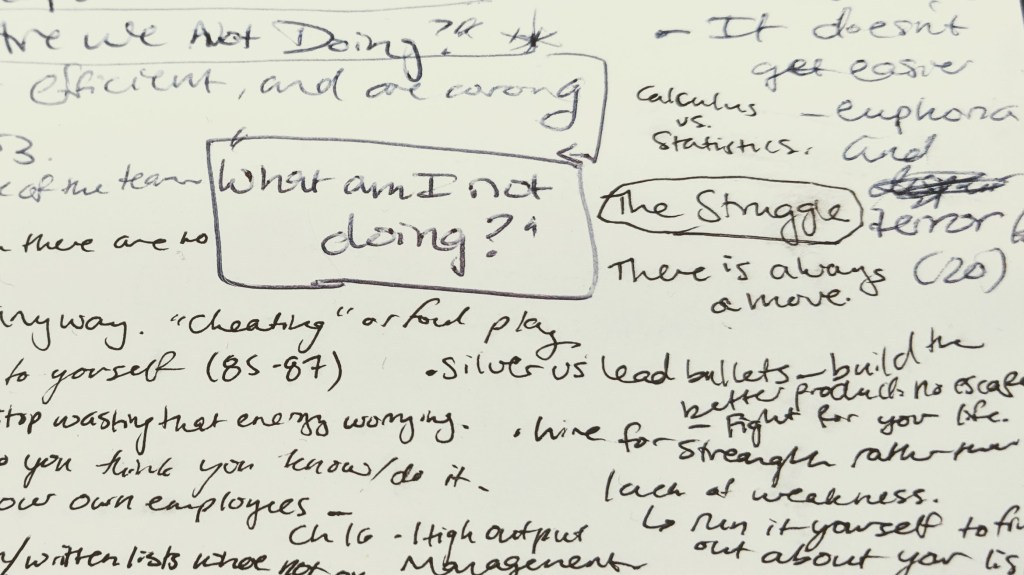 Are we Not Doing?"
efficient, and are wrong
3.
of the team
there are no
"What am I not
doing?"
- It doesn't
get easier
Calculus
vs.
Statistics.
- euphoria
and
terror
(20)
The Struggle
There is always
a move.
anyway. "Cheating" or foul play
to yourself (85-87)
stop wasting that energy worrying.
you think you know/do it.
own employees -
Ch 16 - High output
Management
written lists
• Silver vs lead bullets - build the
better product. no escape
- Fight for your life.
• hire for Streangth rather than
lack of weakness.
↳ run it yourself to
out about your